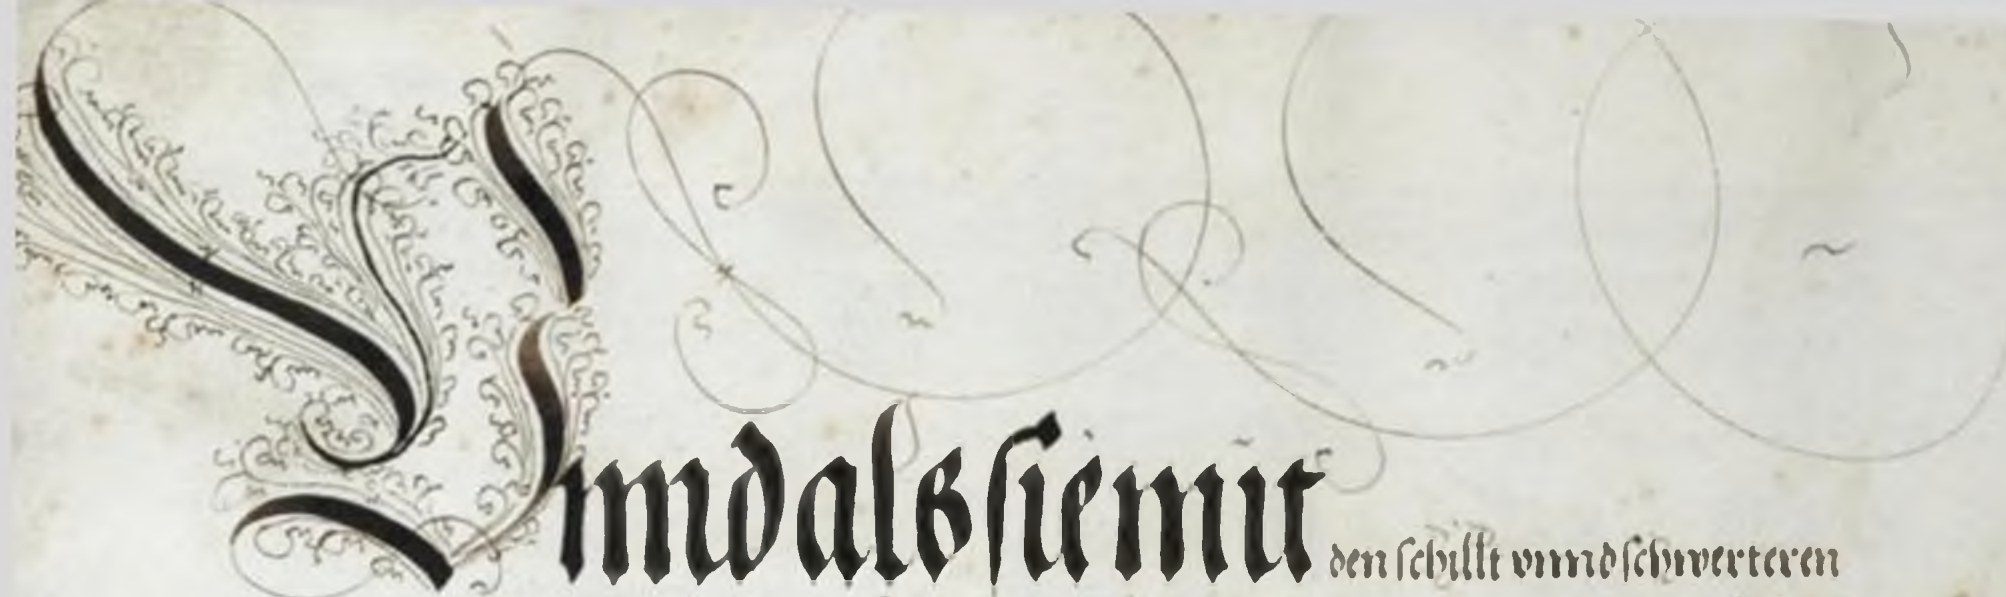 Vnnd als sie mit den schillt vnnd schwerteren